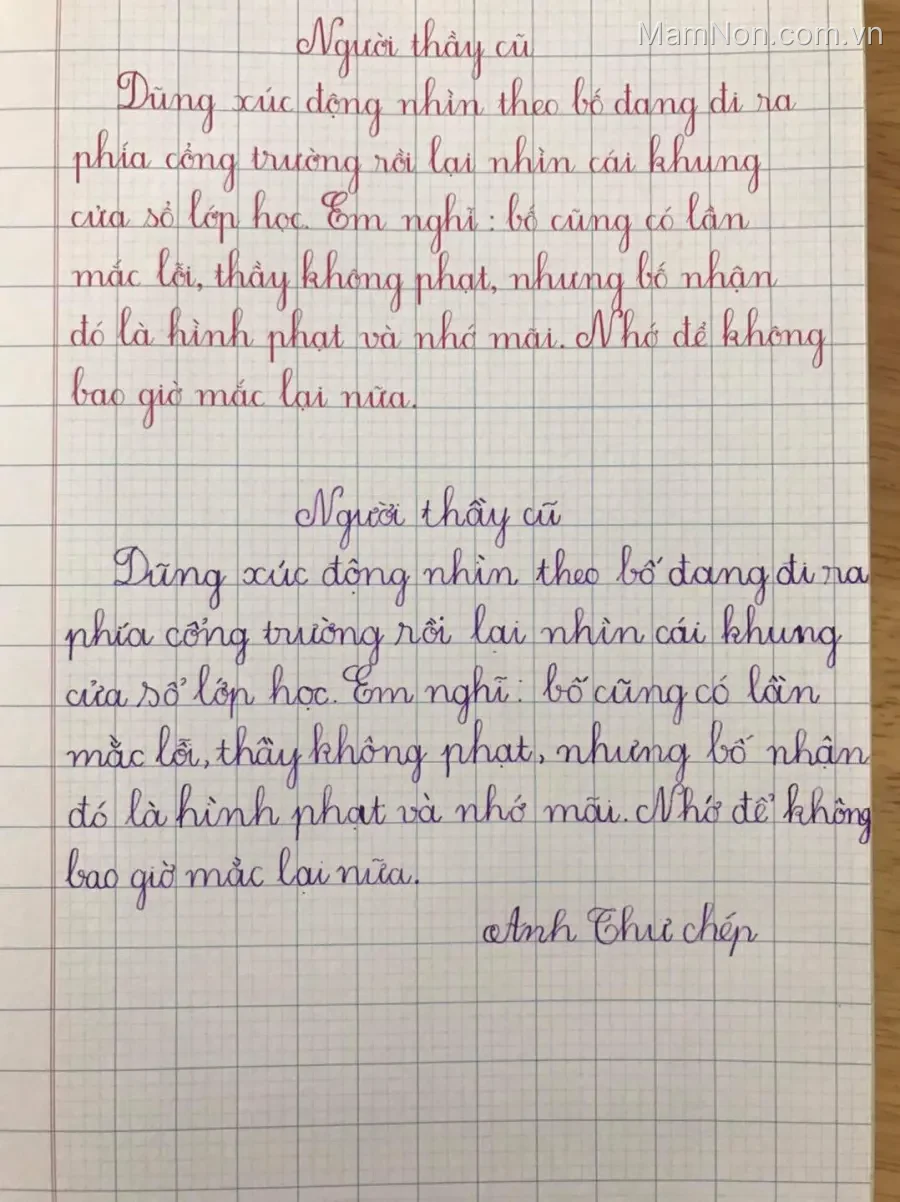 MamNon.com.vn
Người thầy cũ
Dũng xúc động nhìn theo bố đang đi ra
phía cổng trường rồi lại nhìn cái khung
cửa sổ lớp học. Em nghĩ: bố cũng có lần
mắc lỗi, thầy không phạt, nhưng bố nhận
đó là hình phạt và nhớ mãi. Nhớ để không
bao giờ mắc lại nữa.
Người thầy cũ
Dũng xúc động nhìn theo bố đang đi ra
phía cổng trường rồi lại nhìn cái khung
cửa sổ lớp học. Em nghĩ: bố cũng có lần
mắc lỗi, thầy không phạt, nhưng bố nhận
đó là hình phạt và nhớ mãi. Nhớ để không
bao giờ mắc lại nữa.
Anh Thư chép